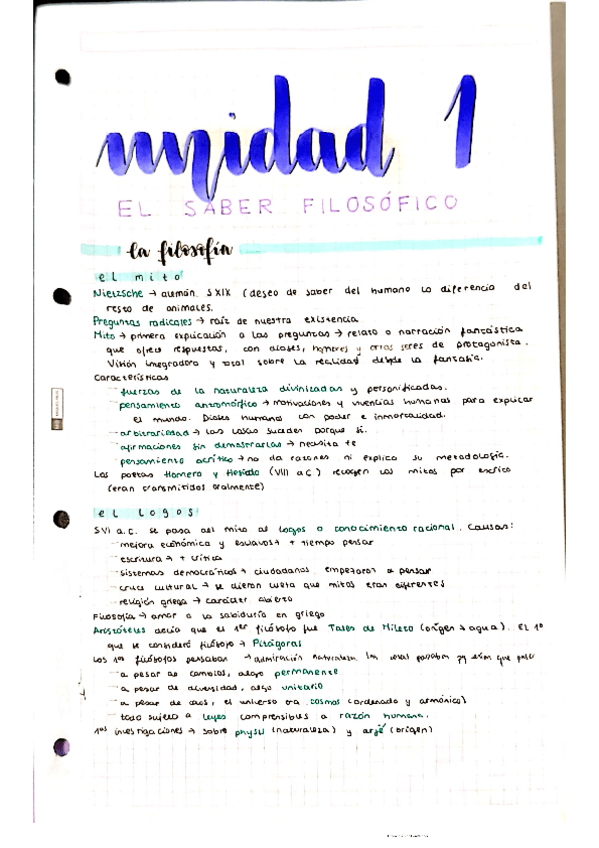 unidad 1
EL SABER FILOSÓFICO
la filosofía
el mito
Nietzsche → alemán. SXIX (deseo de saber del humano lo diferencia del
resto de animales.
Preguntas radicales → raíz de nuestra existencia
Mito → primera explicación a las preguntas → relato o narración fantástica
que ofrece respuestas, con dioses, hombres y otros seres de protagonista.
Visión integradora y total sobre la realidad desde la fantasía.
Características
fuerzas de la naturaleza divinizadas y personificadas.
pensamiento antromórfico → motivaciones y vivencias humanas para explicar
el mundo. Dioses humanos con poder e inmortalidad.
arbitrariedad → las cosas suceden porque sí.
afirmaciones sin demostrarlas → necesita fe
pensamiento acrítico → no da razones ni explica su metodología.
Los poetas Homero y Hesíodo (VIII a.C) recogen los mitos por escrito
(eran transmitidos oralmente)
el logos
SVI a.c. se pasa del mito al logos o conocimiento racional. Causas:
mejora económica y esclavos → + tiempo pensar
escritura → + crítica
sistemas democráticos → ciudadanos empezaron a pensar
cruce cultural → se dieron cuenta que mitos eran diferentes
religión griega → carácter abierto
Filosofía → amor a la sabiduría en griego
Aristóteles decía que el 1er filósofo fue Tales de Mileto (origen → agua). El 1º
que se consideró filósofo → Pitágoras
Los 1os filósofos pensaban → admiración naturaleza. las cosas pasaban
a pesar de cambios, algo permanente
a pesar de diversidad, algo unitario
a pesar de caos, el universo era cosmos (ordenado y armónico)
todo sujeto a leyes comprensibles a razón humana.
1as investigaciones → sobre physis (naturaleza) y arjé (origen)